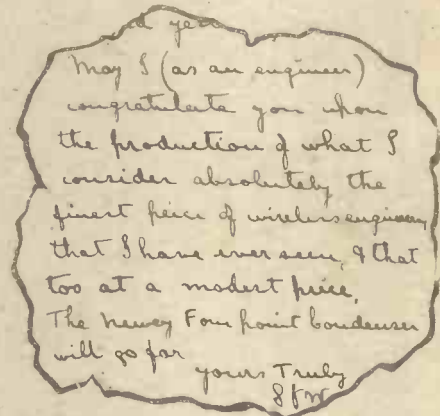 May I (as an engineer)
congratulate you upon
the production of what I
consider absolutely the
finest peice of wireless engineering
that I have ever seen, & that
too at a modest price,
The Newey Four point Condenser
will go far
yours Truly